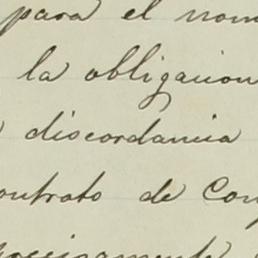 para el nom
la obligacion
discordancia
ontrato de Con